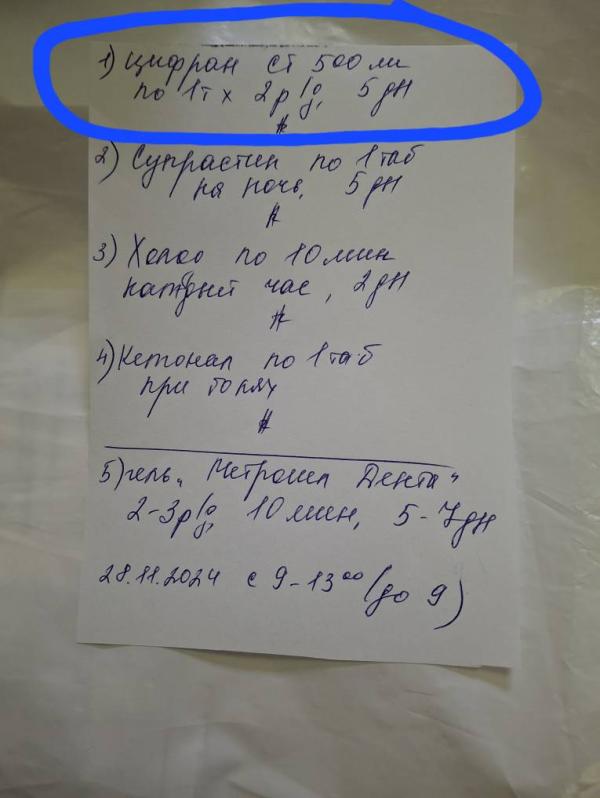 1) Цифран СТ 500 мг
по 1т х 2р/д, 5 дн
#
2) Супрастин по 1 таб
на ночь, 5 дн
#
3) Холод по 10 мин
каждый час, 2 дн
#
4) Кетонал по 1 таб
при болях
#
5) гель „Метрогил Дента"
2-3р/д, 10 мин, 5-7 дн
28.11.2024 с 9-13⁰⁰ (до 9)